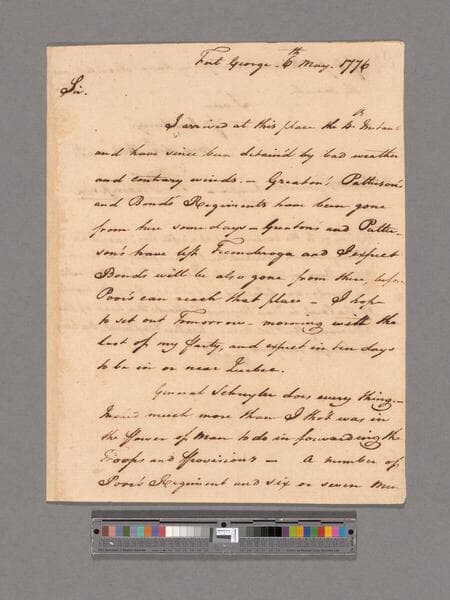 Fort George. 6th May. 1776
Sir.
I arrived at this place the Instant
and have since been detain'd by bad weather
and contrary winds. — Greaton's Patterson's
and Bond's Regiments have been gone
from here some days — Greatons and Patter-
son's have left Ticonderoga and I expect
Bonds will be also gone from there, before
Poor's can reach that place — I hope
to set out Tomorrow-morning with the
last of my party, and expect in ten days
to be in or near Quebec.
General Schuyler does every thing—
Indeed much more than I tho't was in
the Power of Man to do in forwarding the
Troops and Provisions — A number of
Poor's Regiment and six or seven Men